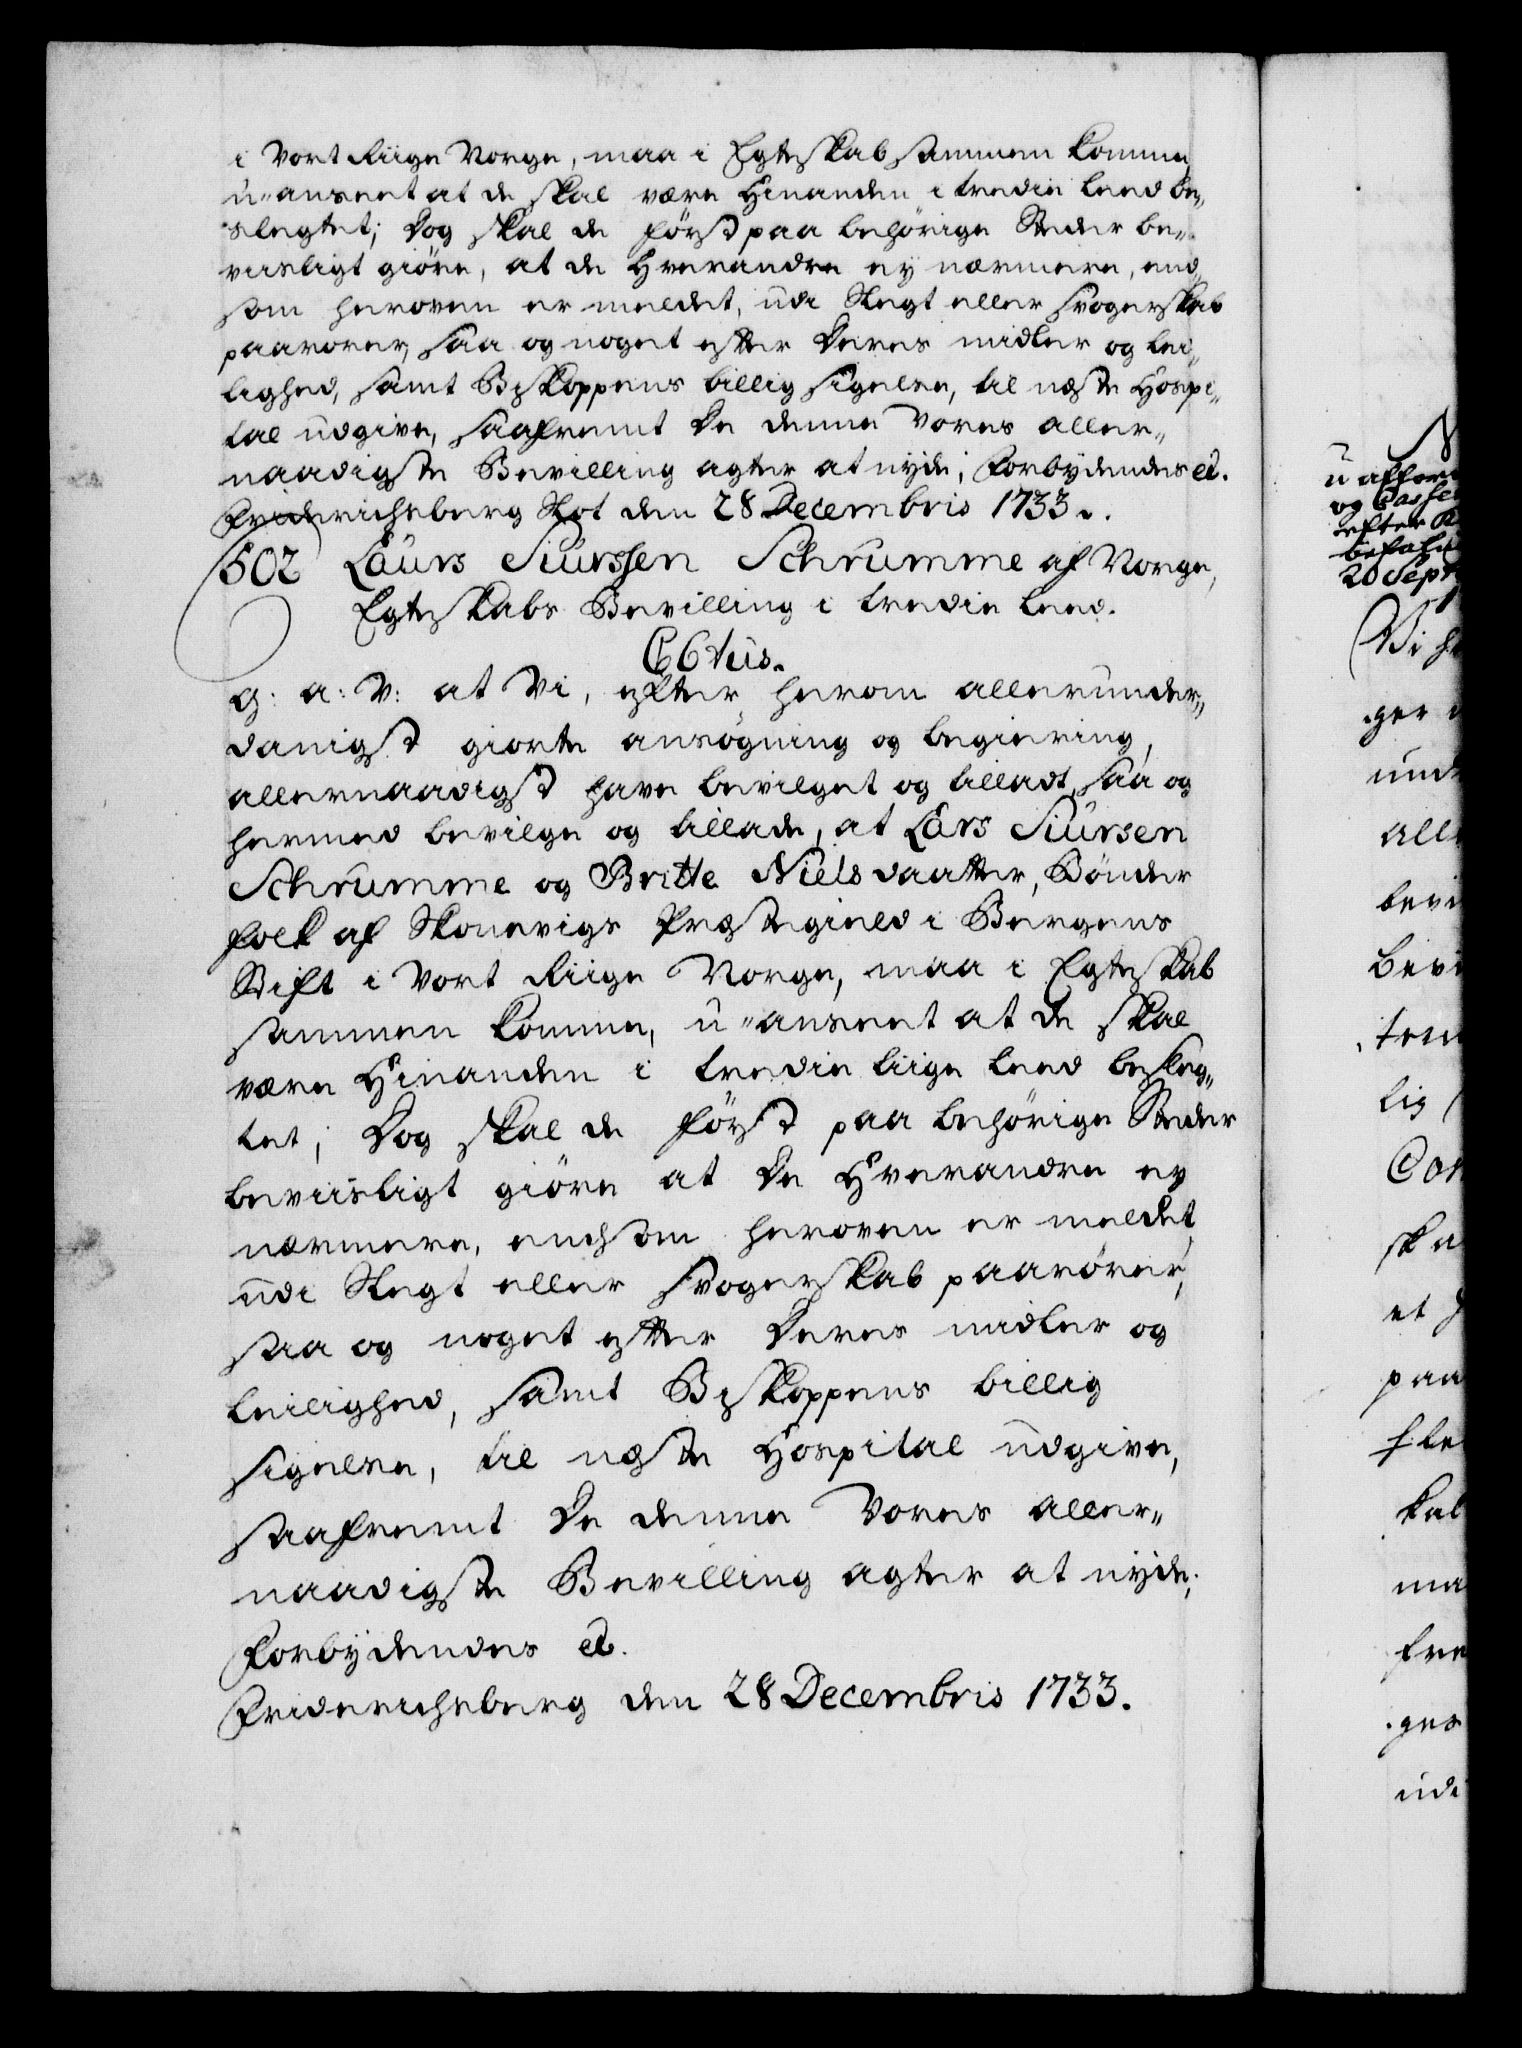 i Vort Riige Norge, maa i Egteskab sammen komme
u-anseet at de skal være Hinanden i tredie Leed be-
slegtet; Dog skal de først paa behørige Steder be-
viisligt giöre, at de Hverandre ey nærmere, end
som heroven er meldet, udi Slegt eller Svogerskab
paarører, saa og noget efter Deres midler og lei-
lighed, samt Biskoppens billig sigelse, til næste Hospi-
tal udgive, saafremt De denne Vores aller-
naadigste Bevilling agter at nyde; Forbydendes et.
Friderichsberg Slot den 28 Decembris 1733.
502 Laurs Siurssen Schrumme af Norge,
Egteskabs Bevilling i tredie Leed.
C 6tus.
G: a: V: at Vi, efter herom allerunder-
danigst giorte ansøgning og begiering,
allernaadigst have bevilget og tilladt, saa og
hermed bevilge og tillade, at Lars Siursen
Schrumme og Britte Niels daatter, Bönder
folk af Skonevigs Præstegield i Bergens
Stift i Vort Riige Norge, maa i Egteskab
sammen komme, u-anseet at de skal
være Hinanden i tredie liige Leed besleg-
tet; Dog skal de först paa behørige Steder
beviisligt giöre at De Hverandre ey
nærmere, end som heroven er meldet
udi Slegt eller Svogerskab paarører,
saa og noget efter Deres midler og
leilighed, samt Biskoppens billig
sigelse, til næste Hospital udgive,
saafremt De denne Vores aller-
naadigste Bevilling agter at nyde;
Forbydendes et.
Friderichsberg den 28 Decembris 1733.
og
efter
20 Sept
Vi
ger
und
alle
bevi
bevi
ten
lig
Con
ska
et
paa
ma
fre
ges
udi